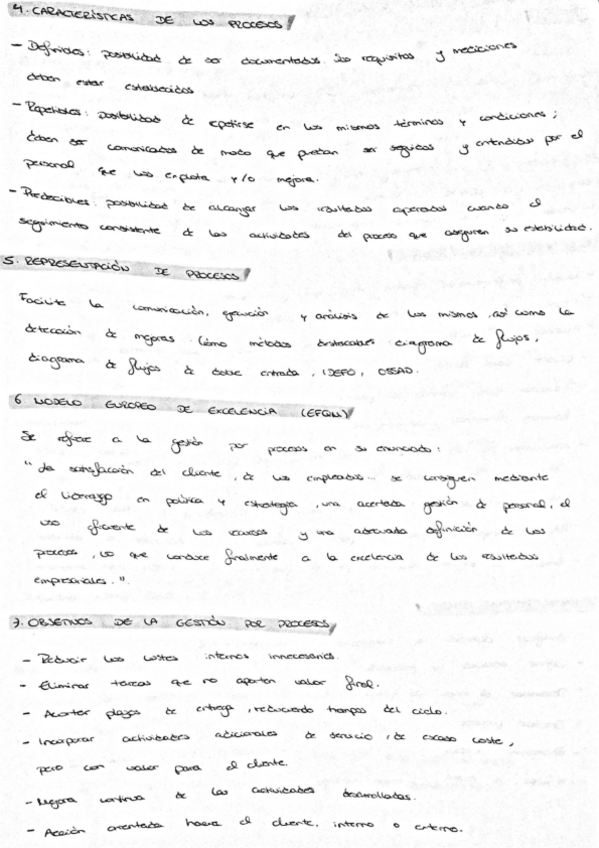 4. CARACTERÍSTICAS DE LOS PROCESOS
- Definidos: posibilidad de ser documentados. Sus requisitos y mediciones
deben estar establecidos
- Repetibles: posibilidad de repetirse en los mismos términos y condiciones;
deben ser comunicados de modo que puedan ser seguidos y entendidos por el
personal que los explota y/o mejora.
- Predecibles: posibilidad de alcanzar los resultados esperados cuando el
seguimiento consistente de las actividades del proceso que aseguren su estabilidad.
5. REPRESENTACIÓN DE PROCESOS
Facilita la comunicación, ejecución y análisis de los mismos, así como la
detección de mejoras. Como métodos destacables: diagrama de flujos,
diagrama de flujos de doble entrada, IDEF0, OSSAD.
6. MODELO EUROPEO DE EXCELENCIA (EFQM)
Se refiere a la gestión por procesos en su enunciado:
"La satisfacción del cliente, de los empleados... se consiguen mediante
el liderazgo en política y estrategia, una acertada gestión de personal, el
uso eficiente de los recursos y una adecuada definición de los
procesos, lo que conduce finalmente a la excelencia de los resultados
empresariales."
7. OBJETIVOS DE LA GESTIÓN POR PROCESOS
- Reducir los costes internos innecesarios.
- Eliminar tareas que no aporten valor final.
- Acortar plazos de entrega, reduciendo tiempos del ciclo.
- Incorporar actividades adicionales de servicio, de escaso coste,
pero con valor para el cliente.
- Mejora continua de las actividades desarrolladas.
- Acción orientada hacia el cliente, interno o externo.